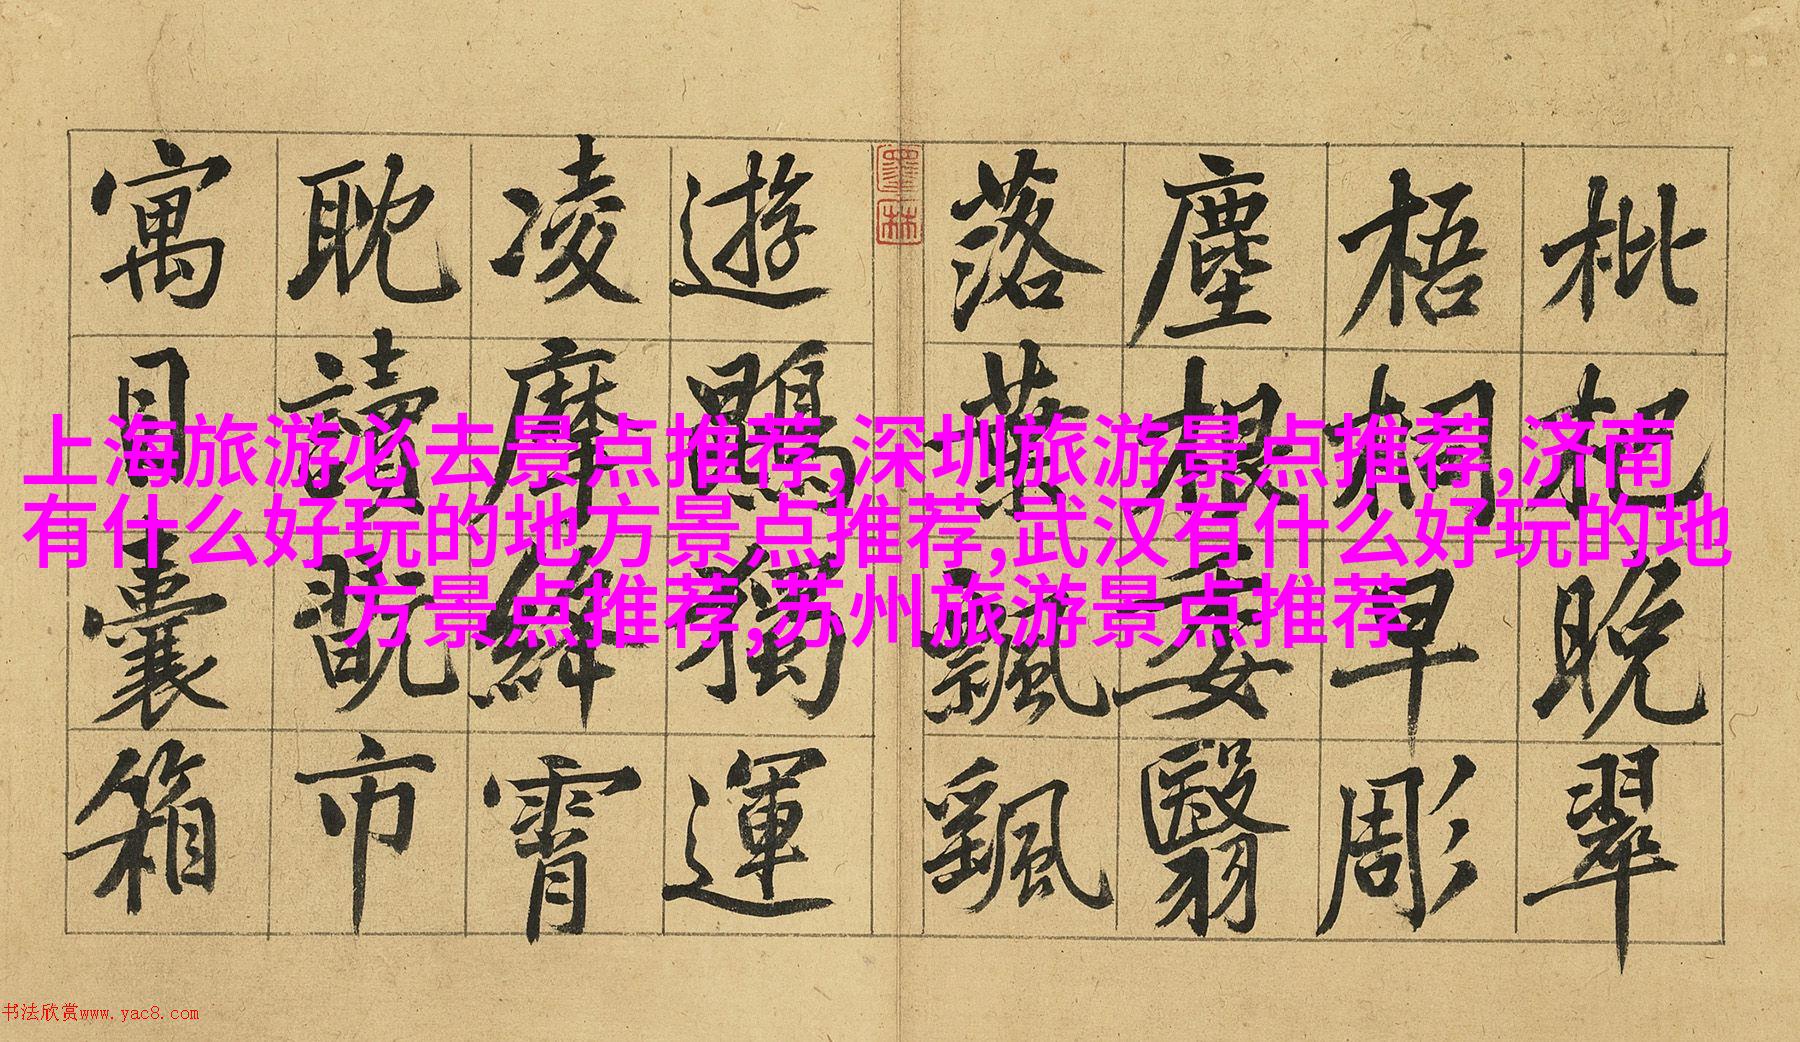 枇杷晚翠
梧桐早彫
塵根委翳
落葉飄颻
墨林
遊鵾獨運
凌摩絳霄
耽讀翫市
寓目囊箱
上海旅游必去景点推荐,深圳旅游景点推荐,济南
有什么好玩的地方景点推荐,武汉有什么好玩的地
方景点推荐,苏州旅游景点推荐
书法欣赏www.yac8.com